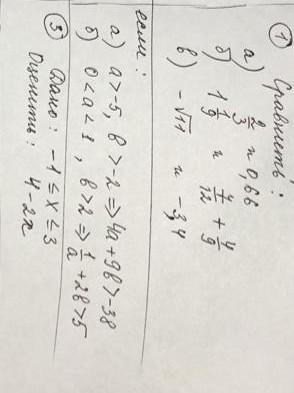 ① Сравнить:
а) 2/3 и 0,66
б) 1 1/9 и 7/12 + 4/9
в) -√11 и -3,4
если:
а) a>-5, b>-2 ⇒ 4a+9b>-38
б) 0<a<1, b>2 ⇒ 1/a+2b>5
③ Дано: -1≤x≤3
Оценить: 4-2x